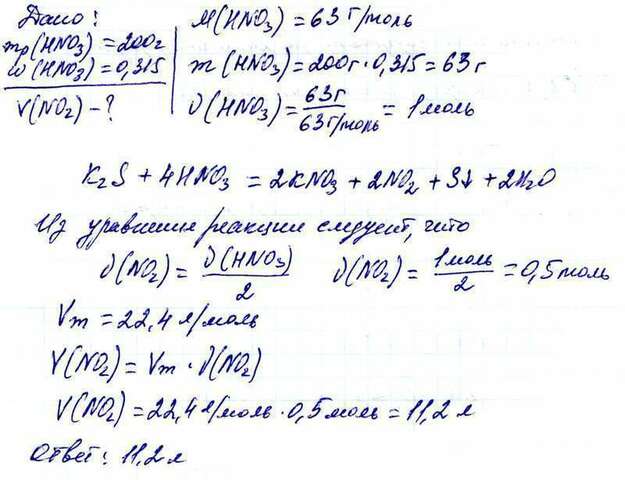 Дано:
mр(HNO3) = 200г
ω(HNO3) = 0,315
V(NO2) - ?
M(HNO3) = 63 г/моль
m(HNO3) = 200г · 0,315 = 63 г
ν(HNO3) = 63г / 63 г/моль = 1 моль
K2S + 4HNO3 = 2KNO3 + 2NO2 + S↓ + 2H2O
Из уравнения реакции следует, что
ν(NO2) = ν(HNO3) / 2 ν(NO2) = 1 моль / 2 = 0,5 моль
Vm = 22,4 л/моль
V(NO2) = Vm · ν(NO2)
V(NO2) = 22,4 л/моль · 0,5 моль = 11,2 л
Ответ: 11,2 л